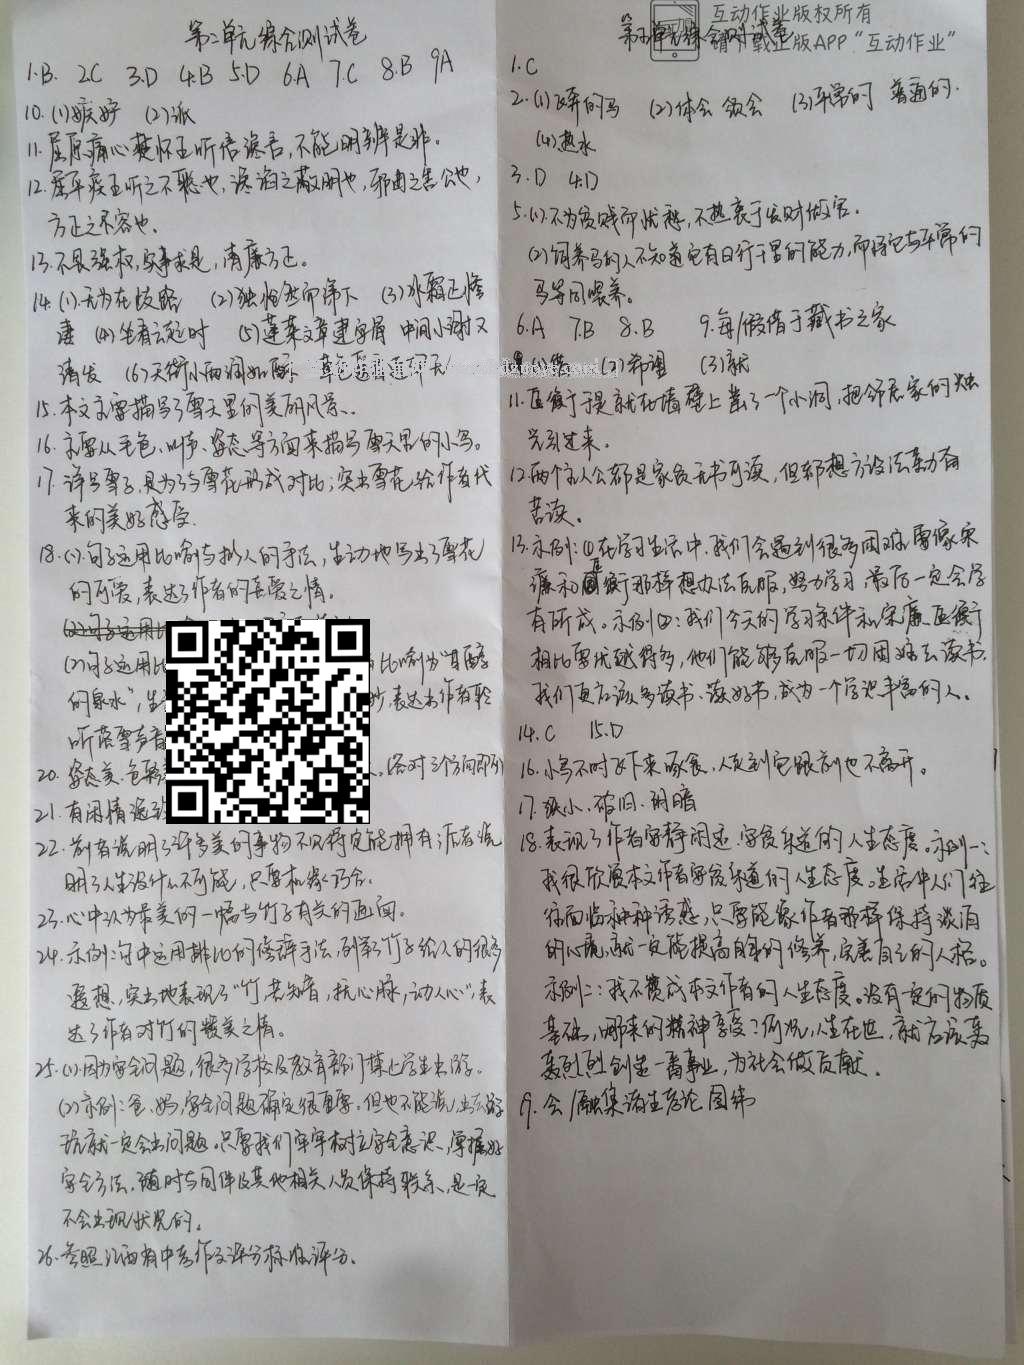 第二单元综合测试卷
1.B. 2C 3.D 4.B 5.D 6.A 7.C 8.B 9A
10.(1)嫉妒 (2)派
11.屈原痛心楚怀王听信谗言,不能明辨是非。
12.屈平疾王听之不聪也,谗谄之蔽明也,邪曲之害公也,
方正之不容也.
13.不畏强权,实事求是,清廉方正。
14.(1)无为在歧路 (2)独怆然而涕下 (3)冰霜正惨
凄 (4)坐看云起时 (5)蓬莱文章建安骨 中间小谢又
清发 (6)天街小雨润如酥 草色遥看近却无
15.本文主要描写了雪天里的美丽风景.
16.主要从毛色、叫声、姿态等方面来描写雪天里的小鸟。
17.详写雪子,是为了与雪花形成对比;突出雪花给作者代
来的美好感受.
18.(1)句子运用比喻与拟人的手法,生动地写出了雪花
的可爱,表达了作者的喜爱之情。
(2)句子运用比 比喻为“甘醇
的泉水”,生 妙,表达出作者聆
听落雪声音
20.姿态美、色 (答对三个方面即可)
21.有闲情逸致
22.前者说明了许多美的事物不见得定能拥有;后者说
明了人生没什么不可能,只要机缘巧合.
23.心中认为最美的一幅与竹子有关的画面。
24.示例:句中运用排比的修辞手法,列举了竹子给人的很多
遐想,突出地表现了“竹,其知音,抚心脉,动人心”,表
达了作者对竹的赞美之情。
25.(1)因为安全问题,很多学校及教育部门禁止学生出游.
(2)示例:爸、妈,安全问题确定很重要.但也不能说,出去游
玩就一定会出问题。只要我们牢牢树立安全意识、掌握好
安全方法、随时与同伴及其他相关人员保持联系,是一定
不会出现状况的。
26.参照江西省中考作文评分标准评分.
互动作业版权所有
请下载正版APP“互动作业”
第三单元综合测试卷
1.C
2.(1)飞奔的马 (2)体会 领会 (3)平常的 普通的.
(4)热水
3.D 4.D
5.(1)不为贫贱而忧愁,不热衷于发财做官.
(2)饲养马的人不知道它有日行千里的能力,而将它与平常的
马等同喂养。
6.A 7.B 8.B 9.每/假借于藏书之家
(2)希望 (3)就
11.匡衡于是就在墙壁上凿了一个小洞,把邻居家的烛
光引过来.
12.两个主人公都是家贫无书可读,但都想方设法努力苦
苦读。
13.示例:①在学习生活中,我们会遇到很多困难,要像宋
濂和匡衡那样想办法克服,努力学习,最后一定会学
有所成。示例②:我们今天的学习条件和宋濂、匡衡
相比要优越得多,他们能够克服一切困难去读书,
我们更应该多读书、读好书,成为一个学识丰富的人。
14.C 15.D
16.小鸟不时飞下来啄食、人走到它跟前也不离开。
17.狭小、破旧、阴暗
18.表现了作者宁静闲适、安贫乐道的人生态度。示例一:
我很欣赏本文作者安贫乐道的人生态度。生活中人们往
往面临种种诱惑,只要能像作者那样保持淡泊
的心境,就一定能提高自身的修养,完善自己的人格。
示例二:我不赞成本文作者的人生态度。没有一定的物质
基础,哪来的精神享受?何况,人生在世,就应该轰
轰烈烈创造一番事业,为社会做贡献.